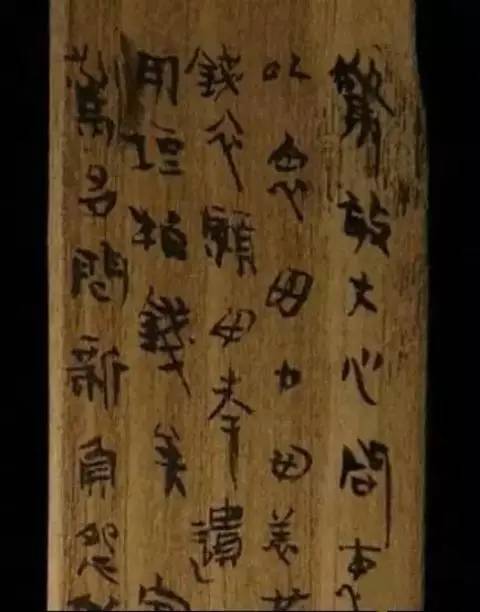 驚敢大心問衷
以衷母力毋恙
錢衣願母幸遺
用垣柏錢矣室
驚多問新負妴